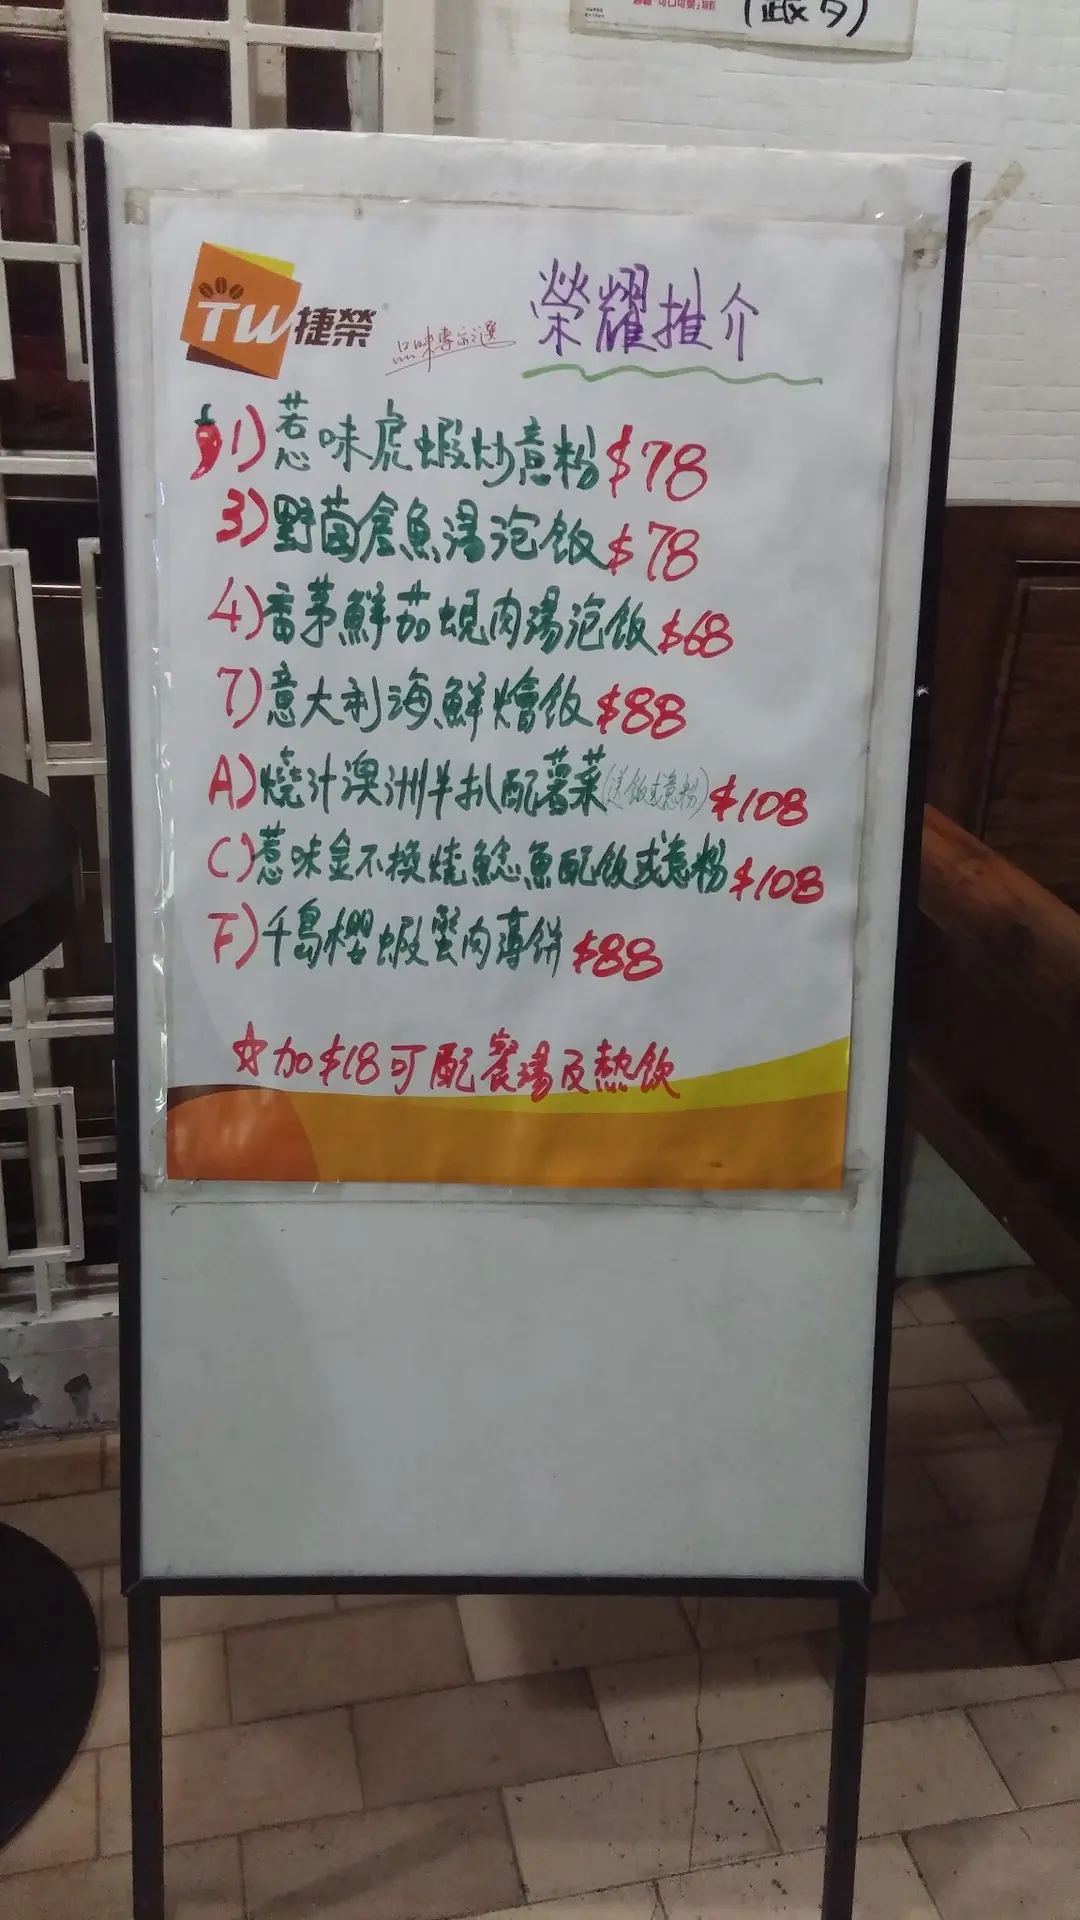 (微夕)
TW捷榮
品味專家之選
榮耀推介
1)惹味虎蝦炒意粉$78
3)野菌倉魚湯泡飯$78
4)香茅鮮茄蜆肉湯泡飯$68
7)意大利海鮮燴飯$88
A)燒汁澳洲羊扒配薯菜(送飯或意粉)$108
C)惹味金不換燒鯰魚配飯或意粉$108
F)千島櫻蝦蟹肉薄餅$88
☆加$18可配餐湯及熱飲